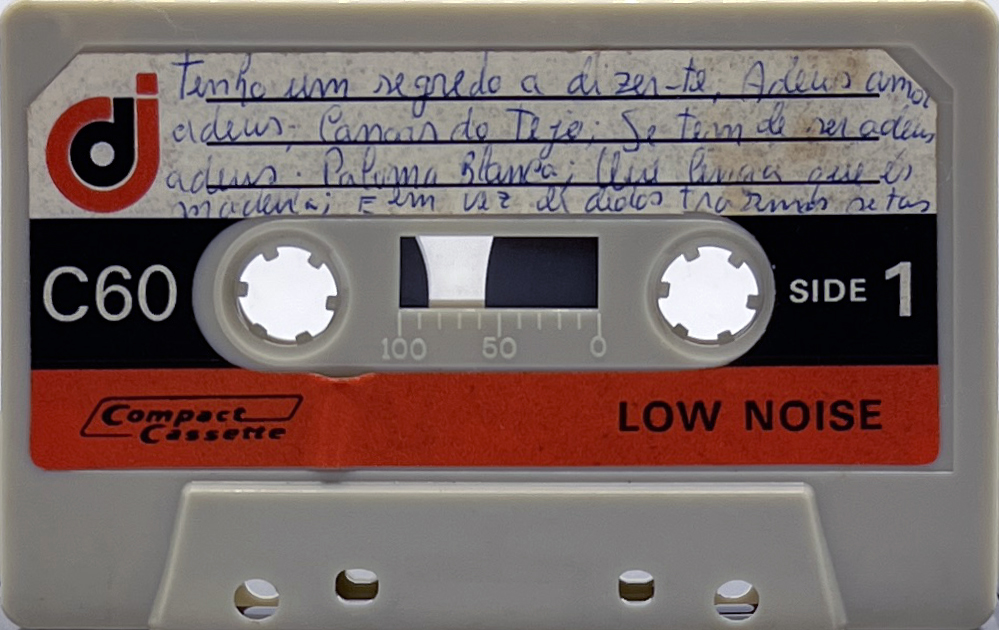 Tenho um segredo a dizer-te, Adeus amor
adeus; Canção do Tejo; Se tem de ser adeus
adeus. Paloma Blanca; que és
madeira; E em vez de trazemos setas
dj
C60
SIDE 1
100 50 0
Compact
Cassette
LOW NOISE